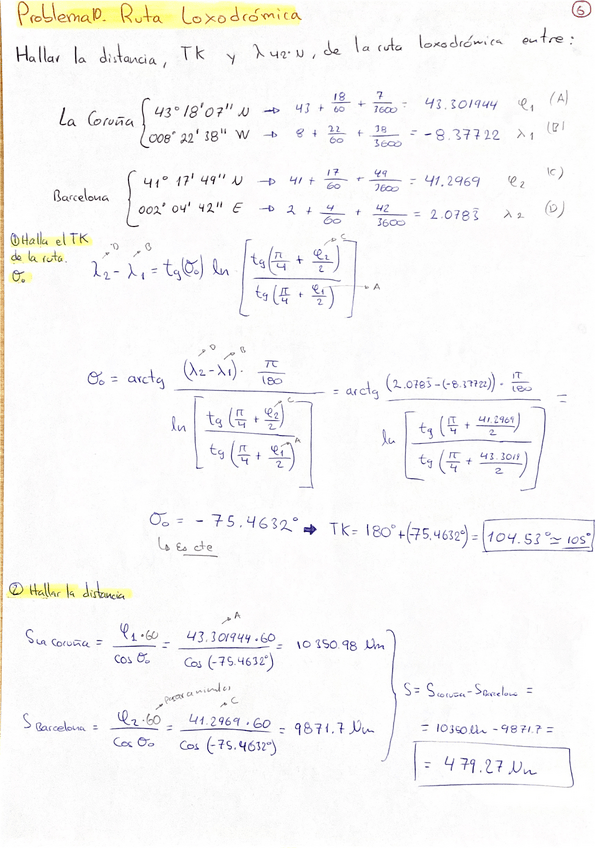 Problema 10. Ruta Loxodrómica
6
Hallar la distancia, TK y λ 42º N, de la ruta loxodrómica entre:
La Coruña { 43° 18' 07'' N → 43 + 18/60 + 7/3600 = 43.301944 φ₁ (A)
008° 22' 38'' W → 8 + 22/60 + 38/3600 = -8.37722 λ₁ (B)
Barcelona { 41° 17' 49'' N → 41 + 17/60 + 49/3600 = 41.2969 φ₂ (C)
002° 04' 42'' E → 2 + 4/60 + 42/3600 = 2.0783 λ₂ (D)
① Halla el TK
de la ruta.
σ₀
D B C
λ₂ - λ₁ = tg(σ₀) ln [ tg(π/4 + φ₂/2) / tg(π/4 + φ₁/2) ] → A
D B
σ₀ = arctg (λ₂-λ₁) · π/180 / ln [ tg(π/4 + φ₂/2) / tg(π/4 + φ₁/2) ] = arctg (2.0783-(-8.37722)) · π/180 / ln [ tg(π/4 + 41.2969/2) / tg(π/4 + 43.3019/2) ] =
C
A
σ₀ = - 75.4632° ⇒ TK = 180° + (-75.4632°) = 104.53° ≃ 105°
↳ Es cte
② Hallar la distancia
A
S La Coruña = φ₁·60 / cos σ₀ = 43.301944·60 / cos (-75.4632°) = 10350.98 Nm
pasar a minutos
C
S Barcelona = φ₂·60 / cos σ₀ = 41.2969·60 / cos (-75.4632°) = 9871.7 Nm
S = S Coruña - S Barcelona =
= 10350 Nm - 9871.7 =
= 479.27 Nm